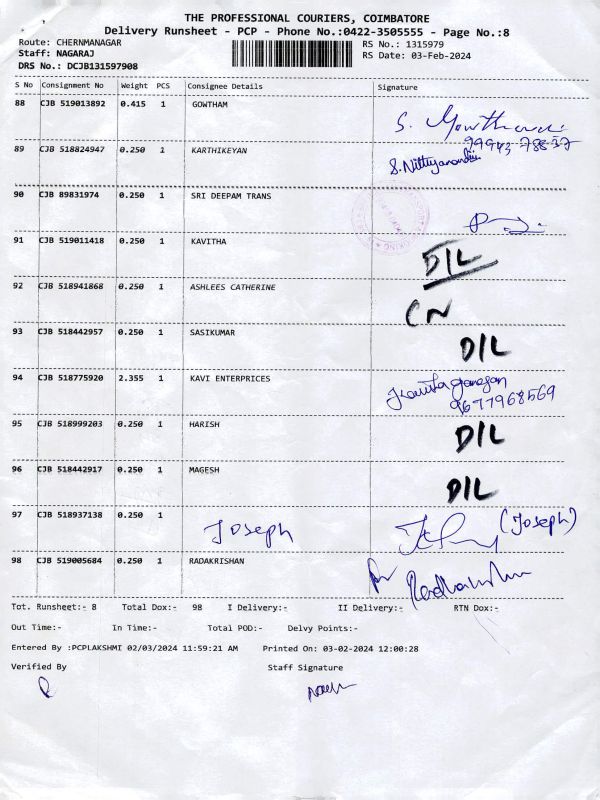 THE PROFESSIONAL COURIERS, COIMBATORE
Delivery Runsheet - PCP - Phone No.:0422-3505555 - Page No.:8
Route: CHERNMANAGAR
RS No.: 1315979
Staff: NAGARAJ
RS Date: 03-Feb-2024
DRS No.: DCJB131597908
S No Consignment No Weight PCS Consignee Details Signature
88 CJB 519013892 0.415 1 GOWTHAM
S. Gowtham
99943 78837
89 CJB 518824947 0.250 1 KARTHIKEYAN
S. Nithyanandhi
90 CJB 89831974 0.250 1 SRI DEEPAM TRANS
91 CJB 519011418 0.250 1 KAVITHA D/L
92 CJB 518941868 0.250 1 ASHLEES CATHERINE CN
93 CJB 518442957 0.250 1 SASIKUMAR D/L
94 CJB 518775920 2.355 1 KAVI ENTERPRICES
9677968569
95 CJB 518999203 0.250 1 HARISH D/L
96 CJB 518442917 0.250 1 MAGESH D/L
97 CJB 518937138 0.250 1 Joseph (Joseph)
98 CJB 519005684 0.250 1 RADAKRISHAN
Tot. Runsheet:- 8 Total Dox:- 98 I Delivery:- II Delivery:- RTN Dox:-
Out Time:- In Time:- Total POD:- Delvy Points:-
Entered By :PCPLAKSHMI 02/03/2024 11:59:21 AM Printed On: 03-02-2024 12:00:28
Verified By Staff Signature